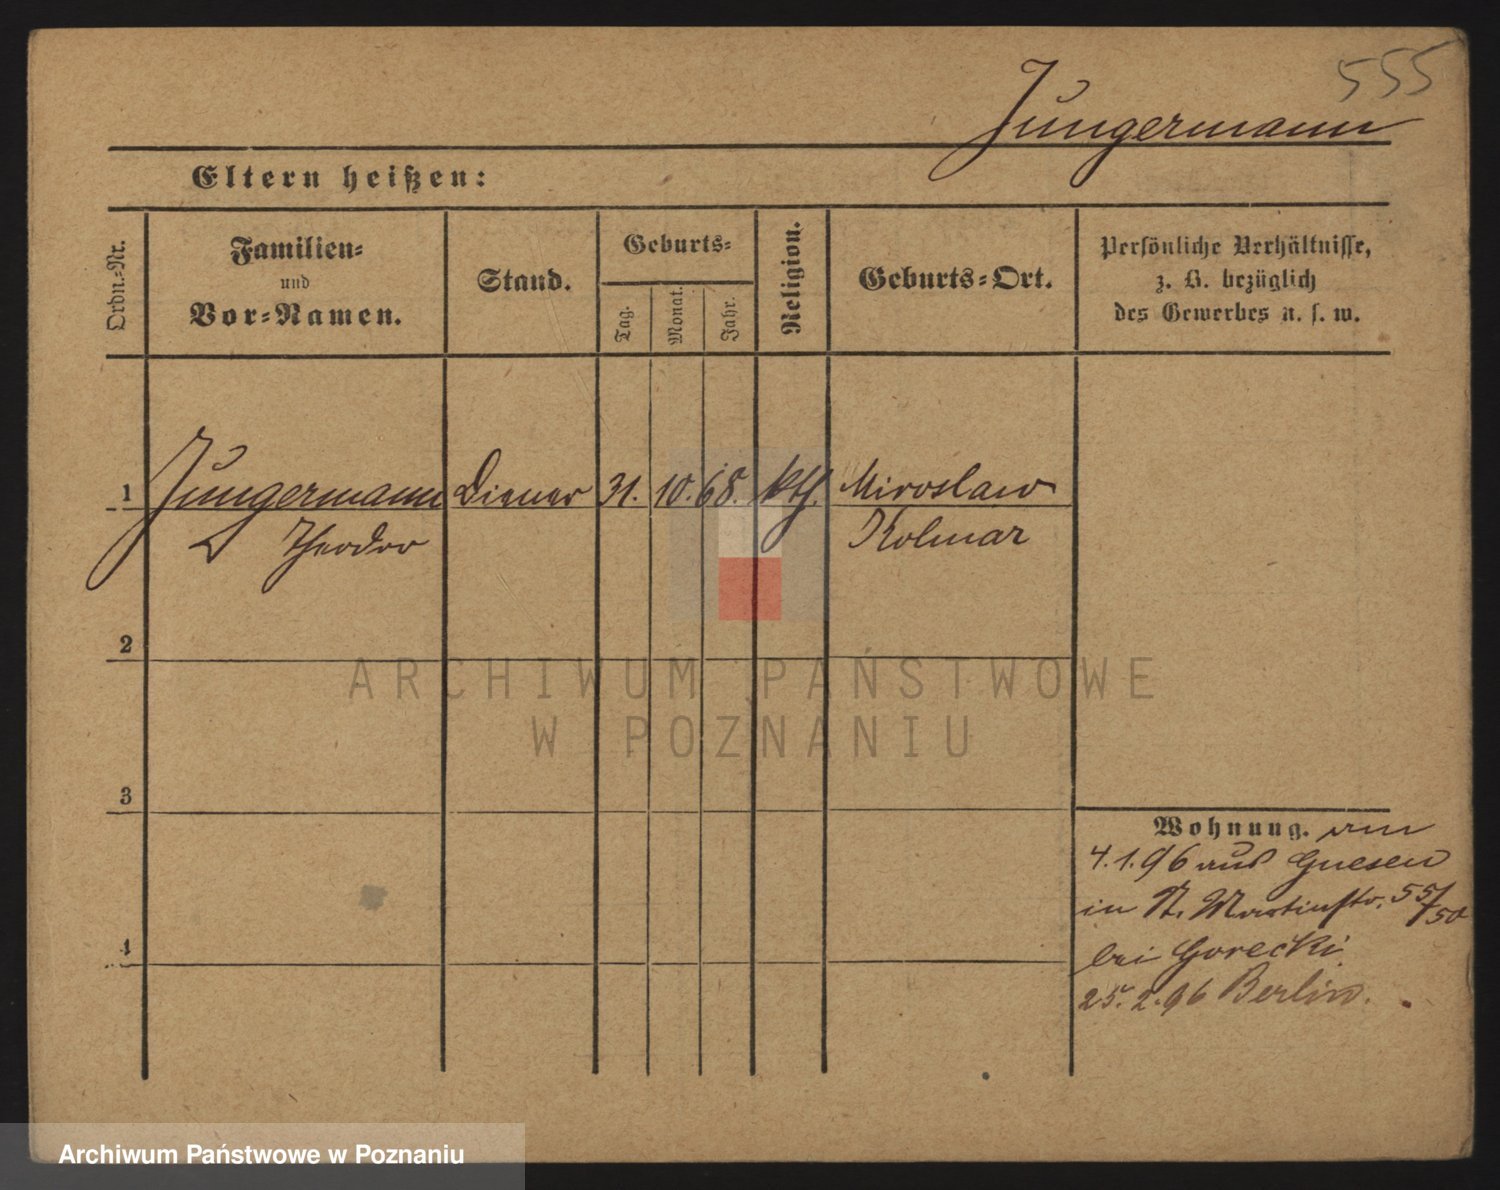 555
Jungermann
Eltern heißen:
Ordn.-Nr.
Familien-
und
Vor-Namen.
Stand.
Geburts-
Tag.
Monat.
Jahr.
Religion.
Geburts-Ort.
Persönliche Verhältnisse,
z. B. bezüglich
des Gewerbes u. s. w.
1 Jungermann Diener 31. 10. 68. kth. Miroslaw
Theodor Kolmar
2
3
4
Wohnung. am
4.1.96 aus Gnesen
in St. Martinstr. 55/50
bei Gorecki
25.2.96 Berlin.
ARCHIWUM PAŃSTWOWE
W POZNANIU
Archiwum Państwowe w Poznaniu